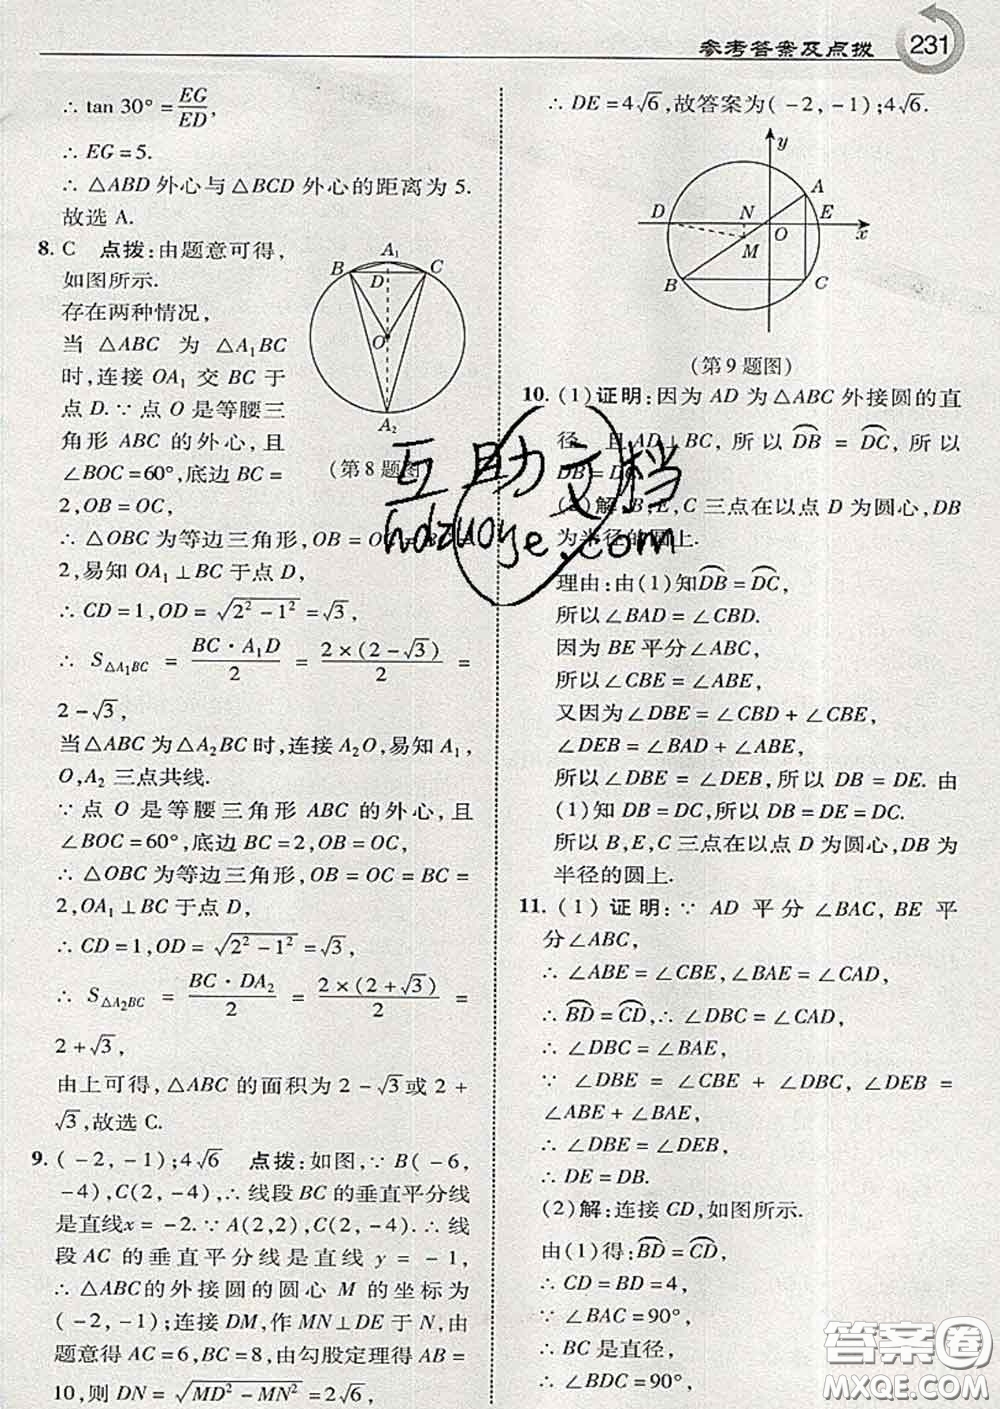 参考答案及点拨 231
∴ tan 30° = EG/ED,
∴ EG = 5.
∴ △ABD 外心与△BCD 外心的距离为 5.
故选 A.
8. C 点拨:由题意可得,
如图所示.
存在两种情况,
当 △ABC 为 △A₁BC
时,连接 OA₁ 交 BC 于
点 D.∵点 O 是等腰三
角形 ABC 的外心,且
∠BOC=60°,底边 BC =
2,OB = OC,
A₁
B
D
C
O
A₂
(第 8 题图)
∴ △OBC 为等边三角形,OB = OC = BC =
2,易知 OA₁⊥BC 于点 D,
∴ CD = 1,OD = √(2² - 1²) = √3,
∴ S△A₁BC = BC · A₁D/2 = 2×(2-√3)/2 =
2 - √3,
当△ABC 为△A₂BC 时,连接 A₂O,易知 A₁,
O,A₂ 三点共线.
∵ 点 O 是等腰三角形 ABC 的外心,且
∠BOC = 60°,底边 BC = 2,OB = OC,
∴ △OBC 为等边三角形,OB = OC = BC =
2,OA₁⊥BC 于点 D,
∴ CD = 1,OD = √(2² - 1²) = √3,
∴ S△A₂BC = BC · DA₂/2 = 2×(2+√3)/2 =
2 + √3,
由上可得,△ABC 的面积为 2 - √3或 2 +
√3,故选 C.
9. (-2,-1);4√6 点拨:如图,∵B(-6,
-4),C(2,-4),∴线段 BC 的垂直平分线
是直线x = -2.∵A(2,2),C(2,-4).∴线
段 AC 的垂直平分线是直线 y = -1,
∴ △ABC的外接圆的圆心 M 的坐标为
(-2,-1);连接 DM,作 MN⊥DE 于 N,由
题意得 AC = 6,BC = 8,由勾股定理得 AB =
10,则 DN = √(MD² - MN²) = 2√6,
∴ DE = 4√6,故答案为(-2,-1);4√6.
y
A
D
N
E
O
x
M
B
C
(第 9 题图)
10. (1)证明:因为 AD 为△ABC 外接圆的直
径,且 AD⊥BC,所以 D͡B = D͡C,所以
DB = DC.
(2)解:B,E,C 三点在以点 D 为圆心,DB
为半径的圆上.
理由:由(1)知D͡B = D͡C,
所以∠BAD = ∠CBD.
因为 BE 平分∠ABC,
所以∠CBE = ∠ABE,
又因为∠DBE = ∠CBD + ∠CBE,
∠DEB = ∠BAD + ∠ABE,
所以∠DBE = ∠DEB,所以 DB = DE. 由
(1)知 DB = DC,所以 DB = DE = DC.
所以 B,E,C 三点在以点 D 为圆心,DB 为
半径的圆上.
11. (1)证明:∵ AD 平分∠BAC, BE 平
分∠ABC,
∴ ∠ABE = ∠CBE,∠BAE = ∠CAD,
∴ B͡D = C͡D,∴∠DBC = ∠CAD,
∴ ∠DBC = ∠BAE,
∵ ∠DBE = ∠CBE + ∠DBC, ∠DEB =
∠ABE + ∠BAE,
∴ ∠DBE = ∠DEB,
∴ DE = DB.
(2)解:连接 CD,如图所示.
由(1)得:B͡D = C͡D,
∴ CD = BD = 4,
∵ ∠BAC = 90°,
∴ BC 是直径,
∴ ∠BDC = 90°,
互助文档
hdzuoye.com
答案圈
MXQE.COM